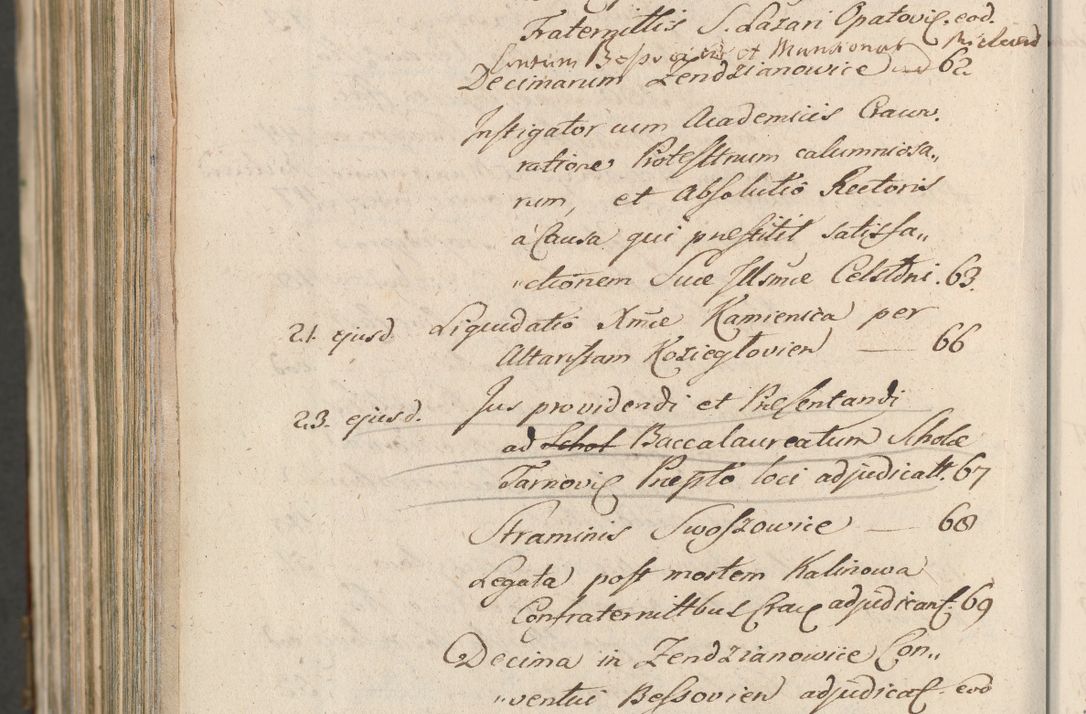 Fraternittis S. Lazari Opatovię. eod.
et Mansionar
Decimarum Zendzianowice 62
Instigator cum Academicis Cracov.
ratione Protestnum calumniosa„
rum, et Absolutio Rectoris
a Causa qui præstitit satisfa„
„ctionem Suæ Illsmæ Celstdni. 63.
21. ejusd. Liquidatio Xmæ Kamienica per
Altaristam Kozieglovien — 66
23. ejusd. Jus providendi et Præsentandi
ad Schol Baccalaureatum Scholæ
Tarnovię Præpto loci adjudicatt. 67
Straminis Swoszowice — 68
Legata post mortem Kalinowa
Confraternittbus Crac adjudicant. 69
Decima in Zendzianowice Con„
„ventui Bessovien adjudicat. eod